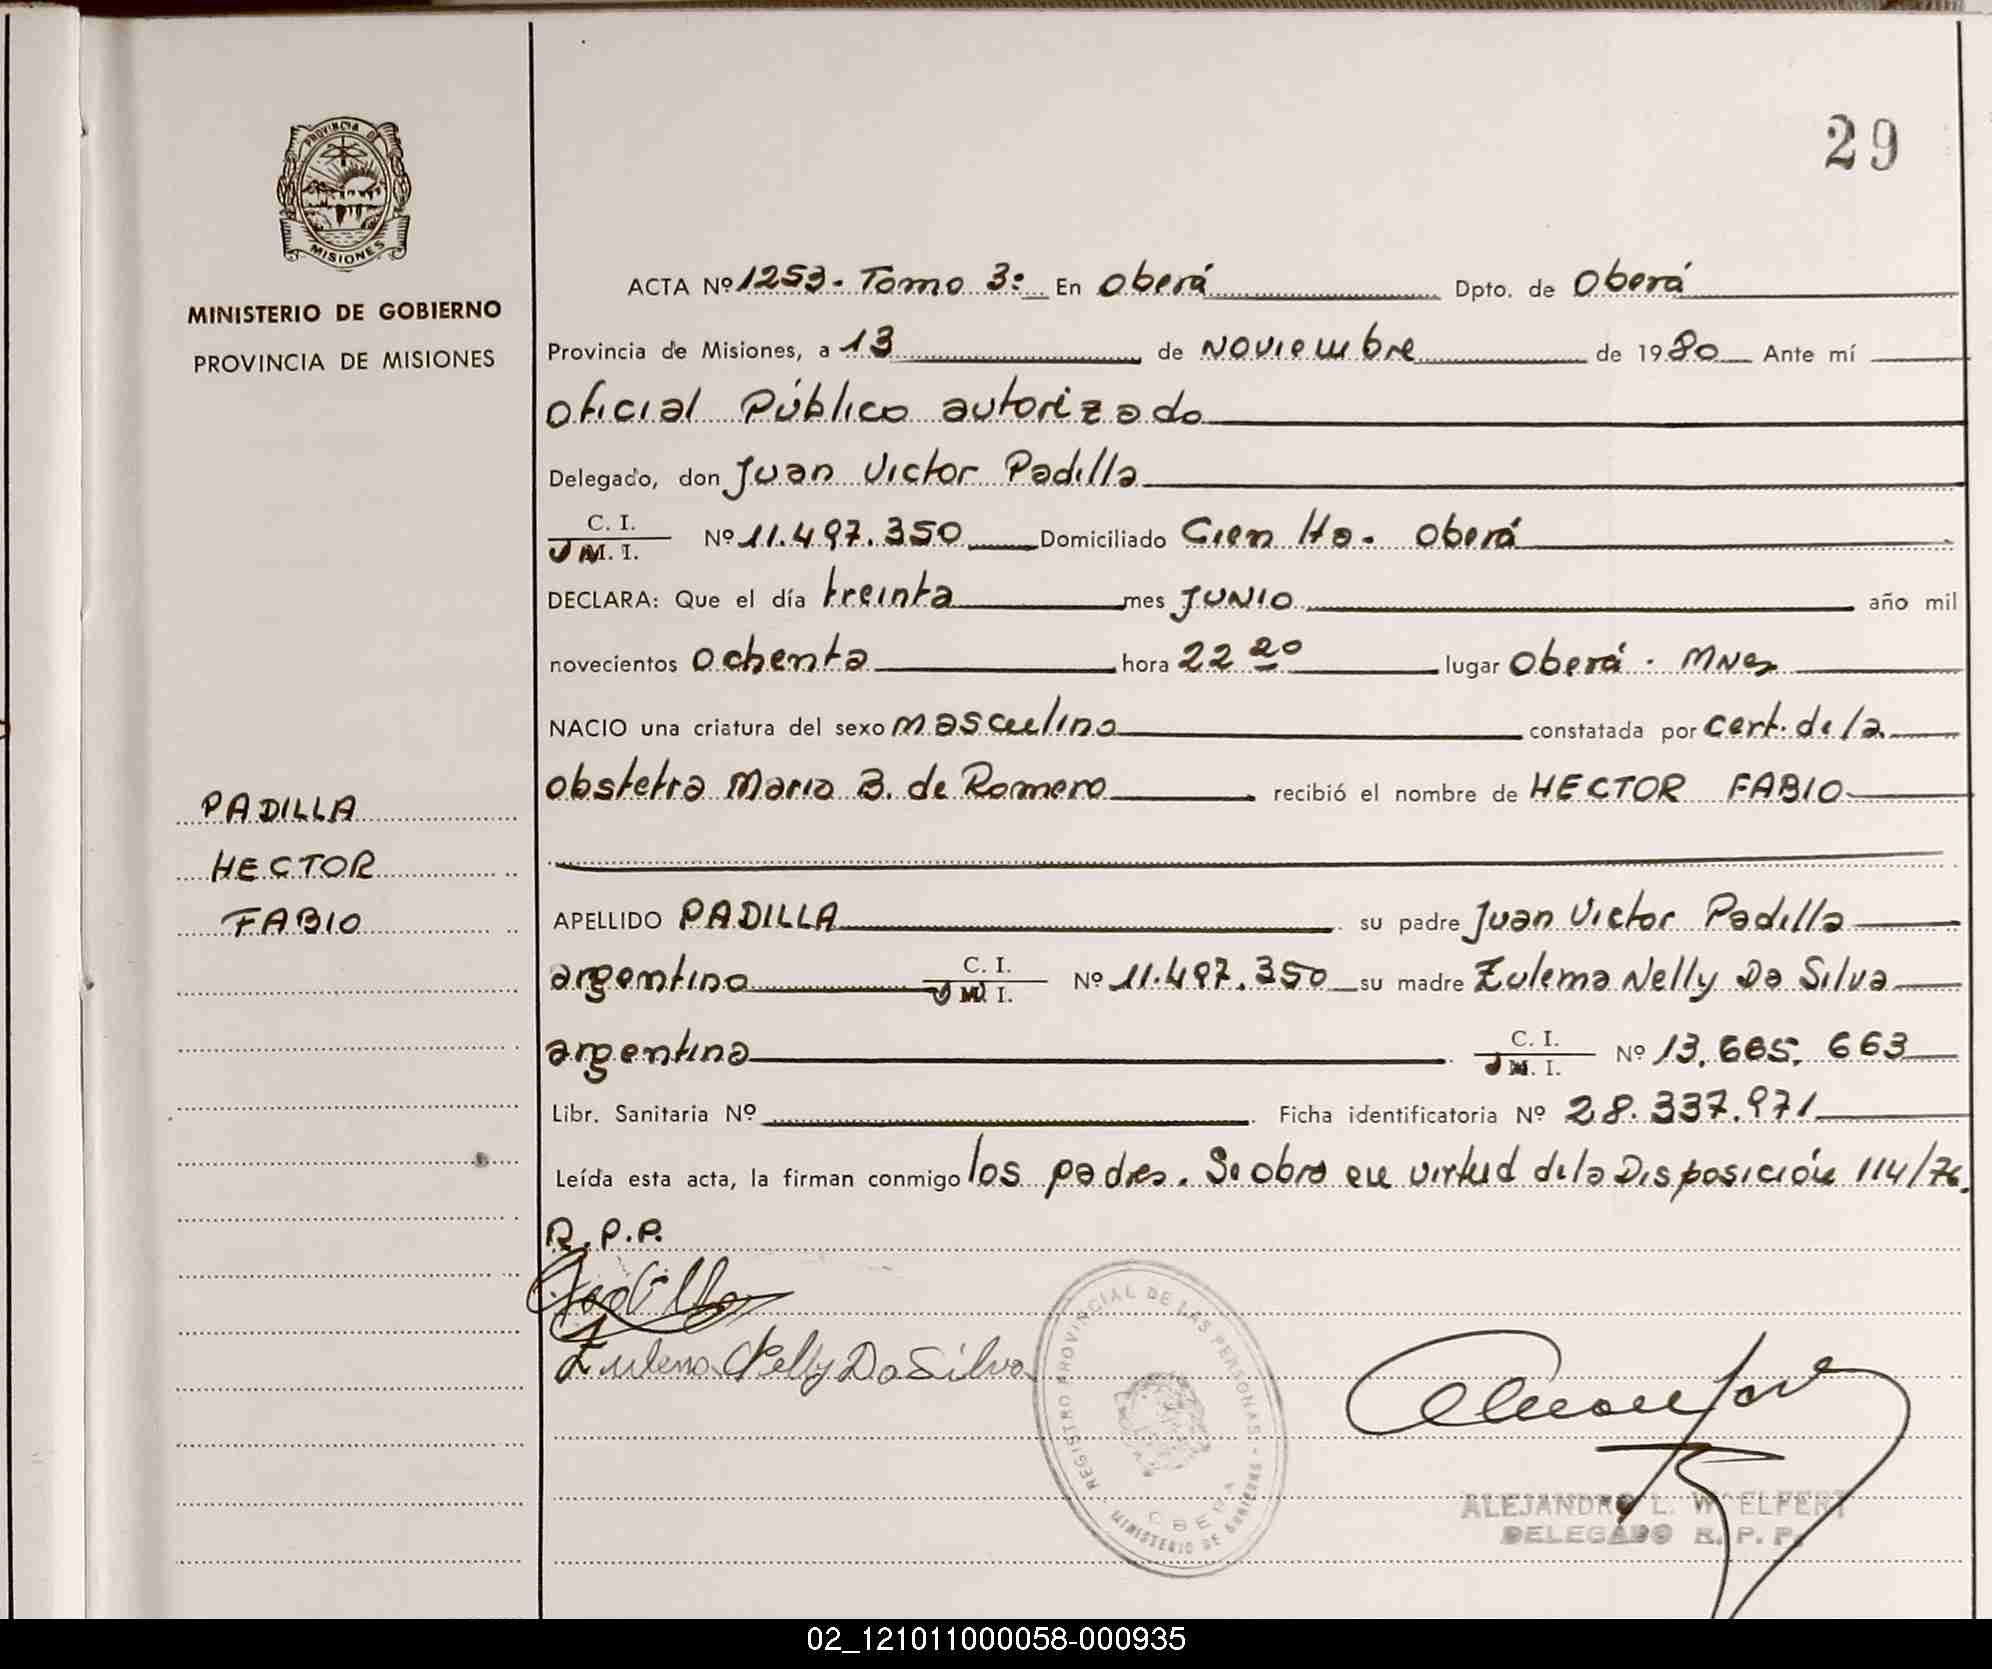 29
PROVINCIA DE
MISIONES
MINISTERIO DE GOBIERNO
PROVINCIA DE MISIONES
ACTA Nº 1253 - Tomo 3: En Oberá Dpto. de Oberá
Provincia de Misiones, a 13 de Noviembre de 1980 Ante mí
Oficial Público autorizado
Delegado, don Juan Victor Padilla
C. I.
M. I. Nº 11.497.350 Domiciliado Cien Ha. Oberá
DECLARA: Que el día treinta mes JUNIO año mil
novecientos Ochenta hora 22 20 lugar Oberá - Mnes
NACIO una criatura del sexo masculino constatada por cert. de la
obstetra Maria B. de Romero recibió el nombre de HECTOR FABIO
PADILLA
HECTOR
FABIO
APELLIDO PADILLA su padre Juan Victor Padilla
argentino C. I. M. I. Nº 11.497.350 su madre Zulema Nelly Da Silva
argentina C. I. M. I. Nº 13.665.663
Libr. Sanitaria Nº Ficha identificatoria Nº 28.337.971
Leída esta acta, la firman conmigo los padres. Se obra en virtud de la Disposición 114/76.
R.P.P.
Padilla
Zulema Nelly Da Silva
REGISTRO PROVINCIAL DE LAS PERSONAS - MINISTERIO DE GOBIERNO
OBERA
ALEJANDRO L. WOELFERT
DELEGADO R. P. P.
02_121011000058-000935